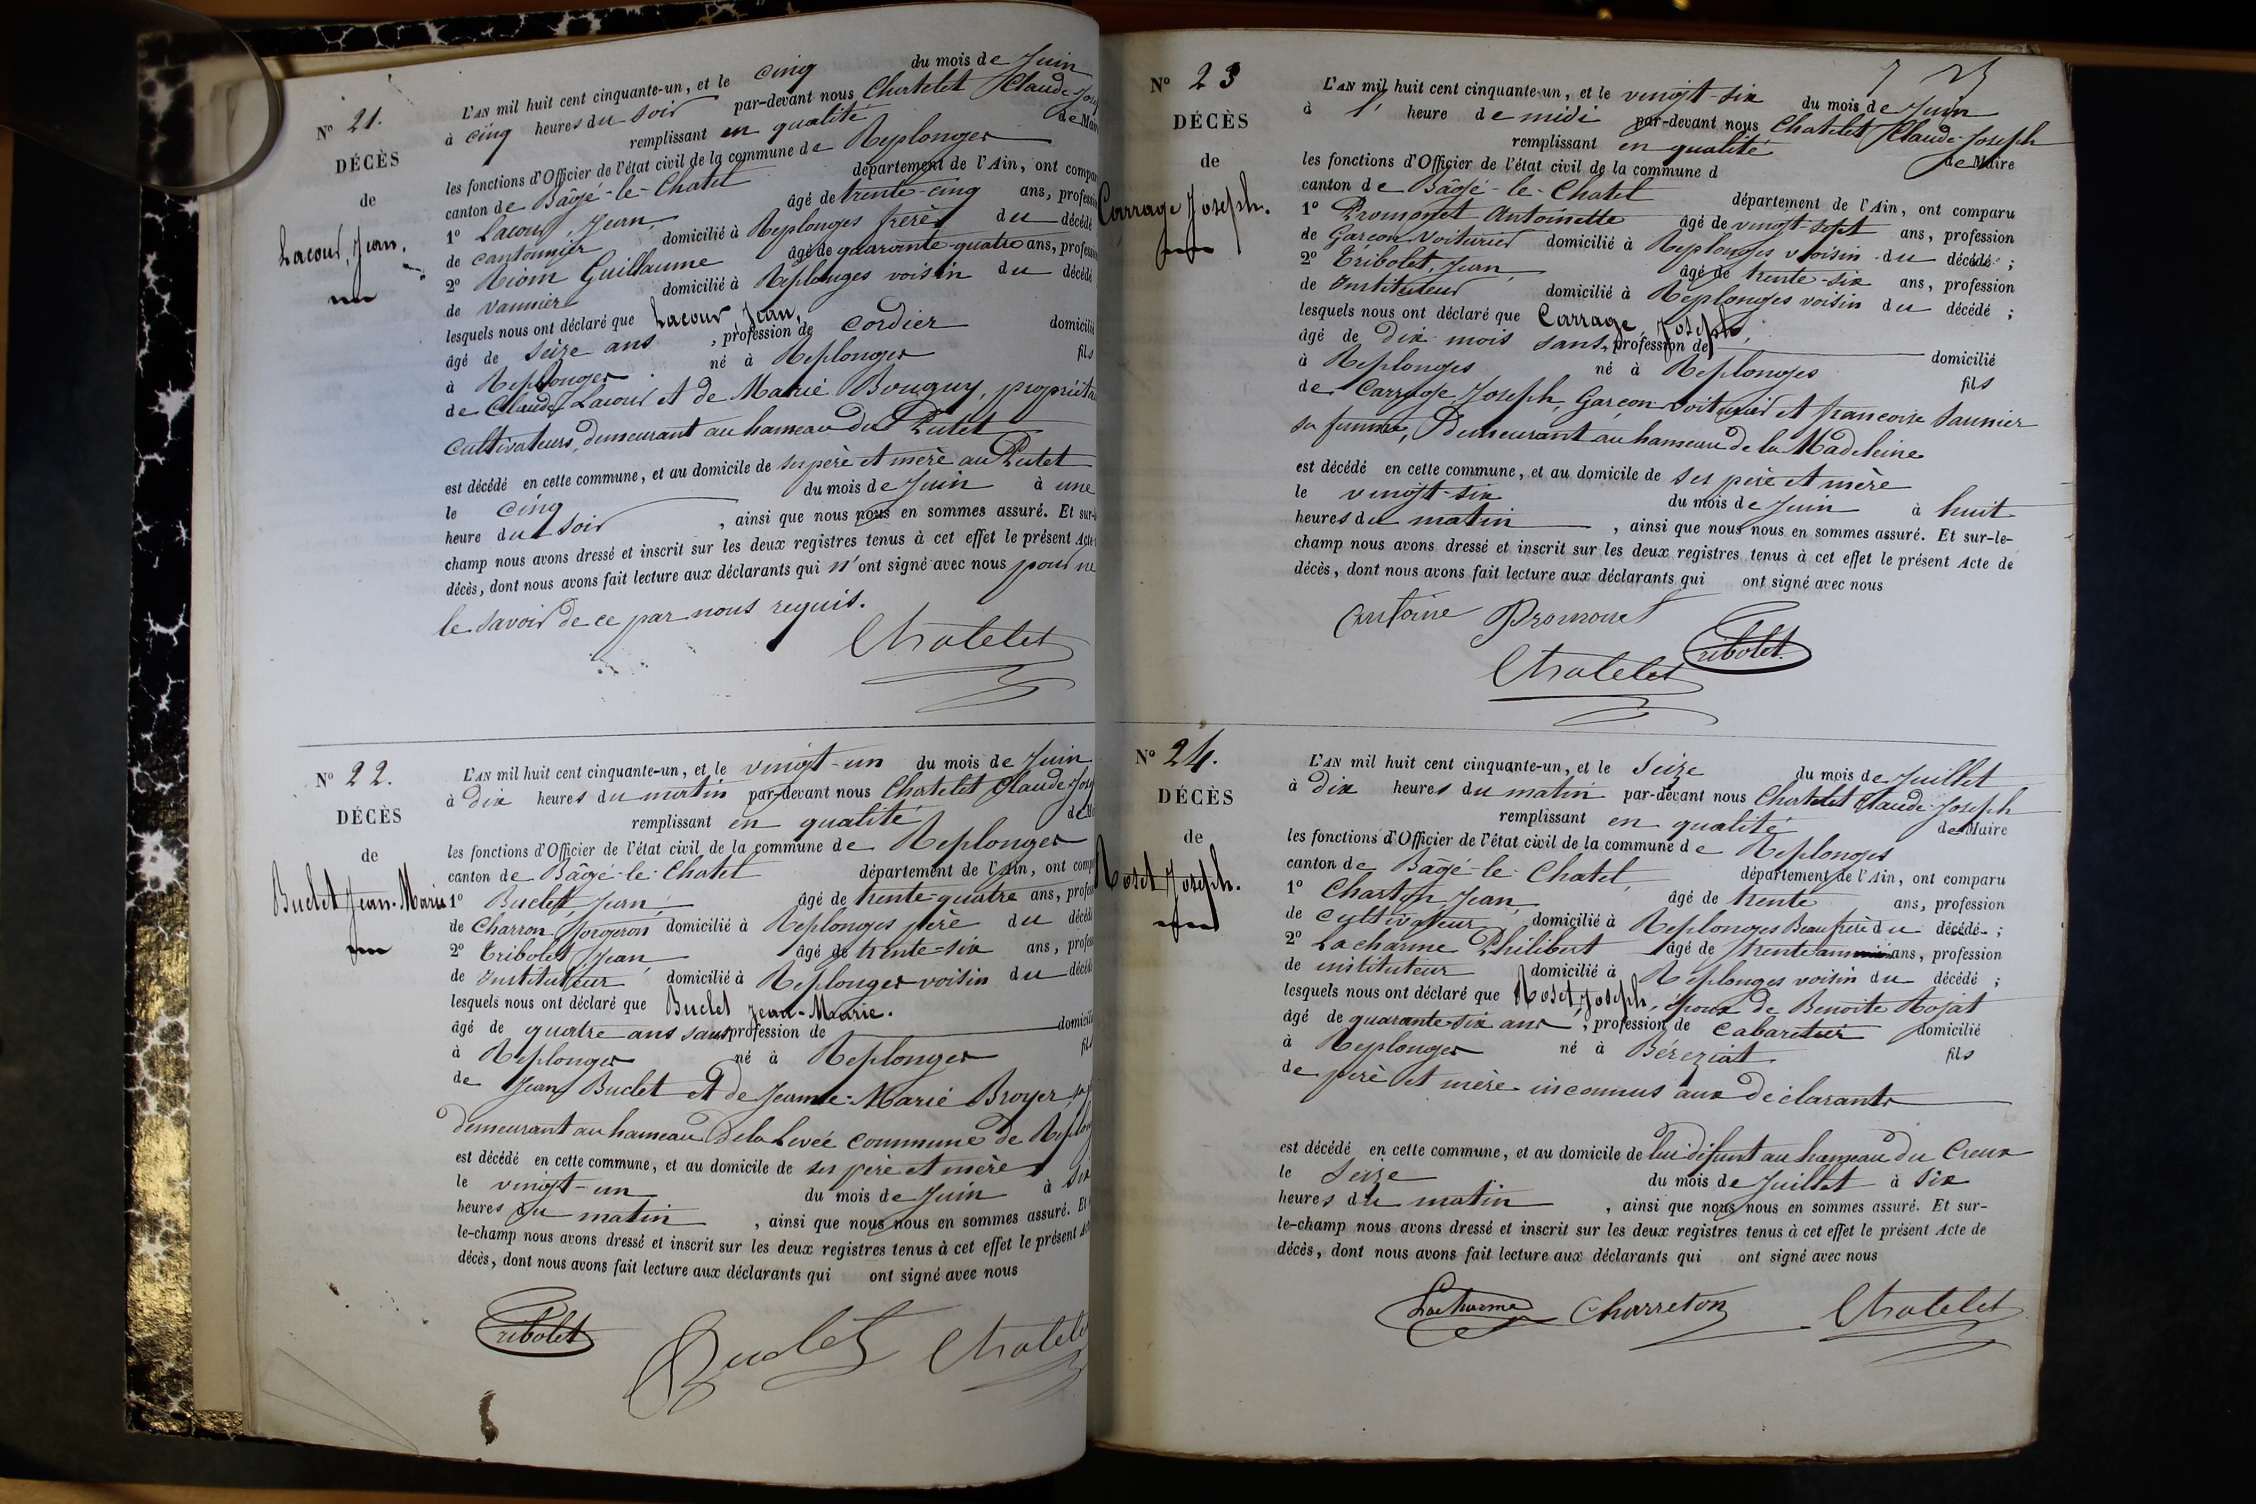 N° 21.
DÉCÈS
de
Lacour, Jean.
L'AN mil huit cent cinquante-un, et le cinq du mois de Juin
à cinq heures du soir par-devant nous Chatelet Claude
remplissant en qualité de Mair
les fonctions d'Officier de l'état civil de la commune de Replonges
canton de Bâgé-le-Chatel département de l'Ain, ont compar
1° Lacour, Jean, âgé de trente-cinq ans, profession
de cantonnier domicilié à Replonges frère du décédé
2° Rion Guillaume âgé de quarante-quatre ans, profession
de vannier domicilié à Replonges voisin du décédé
lesquels nous ont déclaré que Lacour Jean,
âgé de seize ans , profession de cordier domicilié
à Replonges né à Replonges fils
de Claude Lacour et de Marie Bouguy, propriéta
cultivateurs, demeurant au hameau du Putet
est décédé en cette commune, et au domicile de ses père et mère au Putet
le cinq du mois de Juin à une
heure du soir , ainsi que nous nous en sommes assuré. Et sur-
champ nous avons dressé et inscrit sur les deux registres tenus à cet effet le présent Acte
décès, dont nous avons fait lecture aux déclarants qui n'ont signé avec nous pour ne
le savoir de ce par nous requis.
Chatelet
N° 22.
DÉCÈS
de
Buclet Jean-Marie
L'AN mil huit cent cinquante-un, et le vingt-un du mois de Juin
à dix heures du matin par-devant nous Chatelet Claude Jose
remplissant en qualité de M
les fonctions d'Officier de l'état civil de la commune de Replonges
canton de Bâgé-le-Chatel département de l'Ain, ont comp
1° Buclet, Jean, âgé de trente-quatre ans, profes
de Charron forgeron domicilié à Replonges père du décédé
2° Tribolet, Jean, âgé de trente-six ans, profes
de Instituteur domicilié à Replonges voisin du décédé
lesquels nous ont déclaré que Buclet Jean-Marie.
âgé de quatre ans sans profession de domicilié
à Replonges né à Replonges fils
de Jean Buclet et de Jeanne-Marie Broyer sa
demeurant au hameau de la Levée commune de Replon
est décédé en cette commune, et au domicile de ses père et mère
le vingt-un du mois de Juin à six
heures du matin , ainsi que nous nous en sommes assuré. Et
le-champ nous avons dressé et inscrit sur les deux registres tenus à cet effet le présent Ac
décès, dont nous avons fait lecture aux déclarants qui ont signé avec nous
Tribolet Buclet Chatelet
N° 23
DÉCÈS
de
Carrage Joseph.
L'AN mil huit cent cinquante-un, et le vingt-six du mois de Juin
à 1' heure de midi par-devant nous Chatelet Claude-Joseph
remplissant en qualité de Maire
les fonctions d'Officier de l'état civil de la commune d
canton de Bâgé-le-Chatel département de l'Ain, ont comparu
1° Promonet Antoinette âgé de vingt-sept ans, profession
de Garçon Voiturier domicilié à Replonges voisin du décédé ;
2° Tribolet, Jean, âgé de trente-six ans, profession
de Instituteur domicilié à Replonges voisin du décédé ;
lesquels nous ont déclaré que Carrage, Joseph,
âgé de dix mois sans, profession de domicilié
à Replonges né à Replonges fils
de Carrage, Joseph, Garçon voiturier et francoise Saunier
sa femme, Demeurant au hameau de la Madeleine
est décédé en cette commune, et au domicile de ses père et mère
le vingt-six du mois de Juin à huit
heures du matin , ainsi que nous nous en sommes assuré. Et sur-le-
champ nous avons dressé et inscrit sur les deux registres tenus à cet effet le présent Acte de
décès, dont nous avons fait lecture aux déclarants qui ont signé avec nous
Antoine Promonet
Tribolet
Chatelet
N° 24.
DÉCÈS
de
Roset Joseph.
L'AN mil huit cent cinquante-un, et le seize du mois de Juillet
à dix heures du matin par-devant nous Chatelet Claude-Joseph
remplissant en qualité de Maire
les fonctions d'Officier de l'état civil de la commune de Replonges
canton de Bâgé-le-Chatel, département de l'Ain, ont comparu
1° Charton, Jean, âgé de trente ans, profession
de cultivateur domicilié à Replonges Beau frère du décédé ;
2° Lacharme Philibert âgé de trente ans, profession
de instituteur domicilié à Replonges voisin du décédé ;
lesquels nous ont déclaré que Roset, Joseph, époux de Benoite Rojat
âgé de quarante-six ans , profession de Cabaretier domicilié
à Replonges né à Béréziat fils
de père et mère inconnus aux déclarants
est décédé en cette commune, et au domicile de lui défunt au hameau du Creux
le Seize du mois de Juillet à six
heures du matin , ainsi que nous nous en sommes assuré. Et sur-
le-champ nous avons dressé et inscrit sur les deux registres tenus à cet effet le présent Acte de
décès, dont nous avons fait lecture aux déclarants qui ont signé avec nous
Lacharme Charreton Chatelet